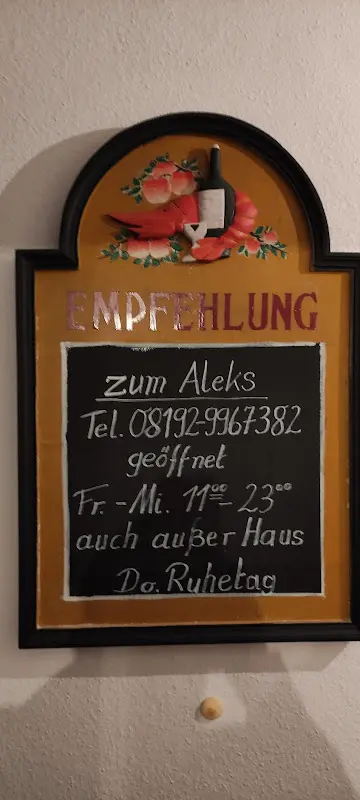 EMPFEHLUNG
zum Aleks
Tel. 08192-9967382
geöffnet
Fr. - Mi. 11⁰⁰ - 23⁰⁰
auch außer Haus
Do. Ruhetag